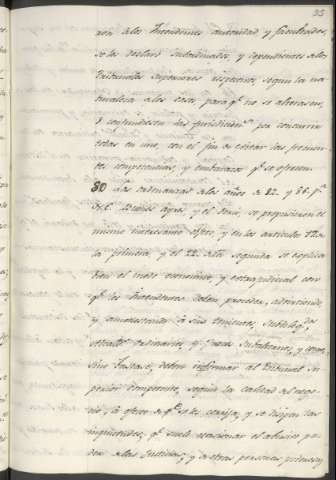 35
ron á los Intendentes autoridad y facultades,
se les declaró subordinados, y dependientes á los
Tribunales Superiores respectivos segun la na-
turaleza á los casos para qᵉ no se alterasen,
y confundiesen las jurisdicciones por concurrir
todas en uno, con el fin de evitar las frecuen-
tes competencias, y embarazos qᵉ se ofrecen.
30 á las ordenanzas de los años de 82. y 86. pᵃ
Buenos Ayres, y el se propusieron el
mismo y en los articulos
la primera, y el 22. de la segunda se explica
bien el modo economico, y extrajudicial con
qᵉ los Intendentes deben proceder, advirtiendo
y amonestando á sus tenientes, Subdelegᵈᵒˢ,
Alcaldes ordinarios, y Jueces Subalternos, y quan-
sino bastare, deben informar al Tribunal Su-
perior competente, segun la calidad del nego-
cio, á efecto de qᵉ se les corrija, y se eviten las
inquietudes, qᵉ suele ocasionar el abuso de po-
der á las Justicias, y á otras personas